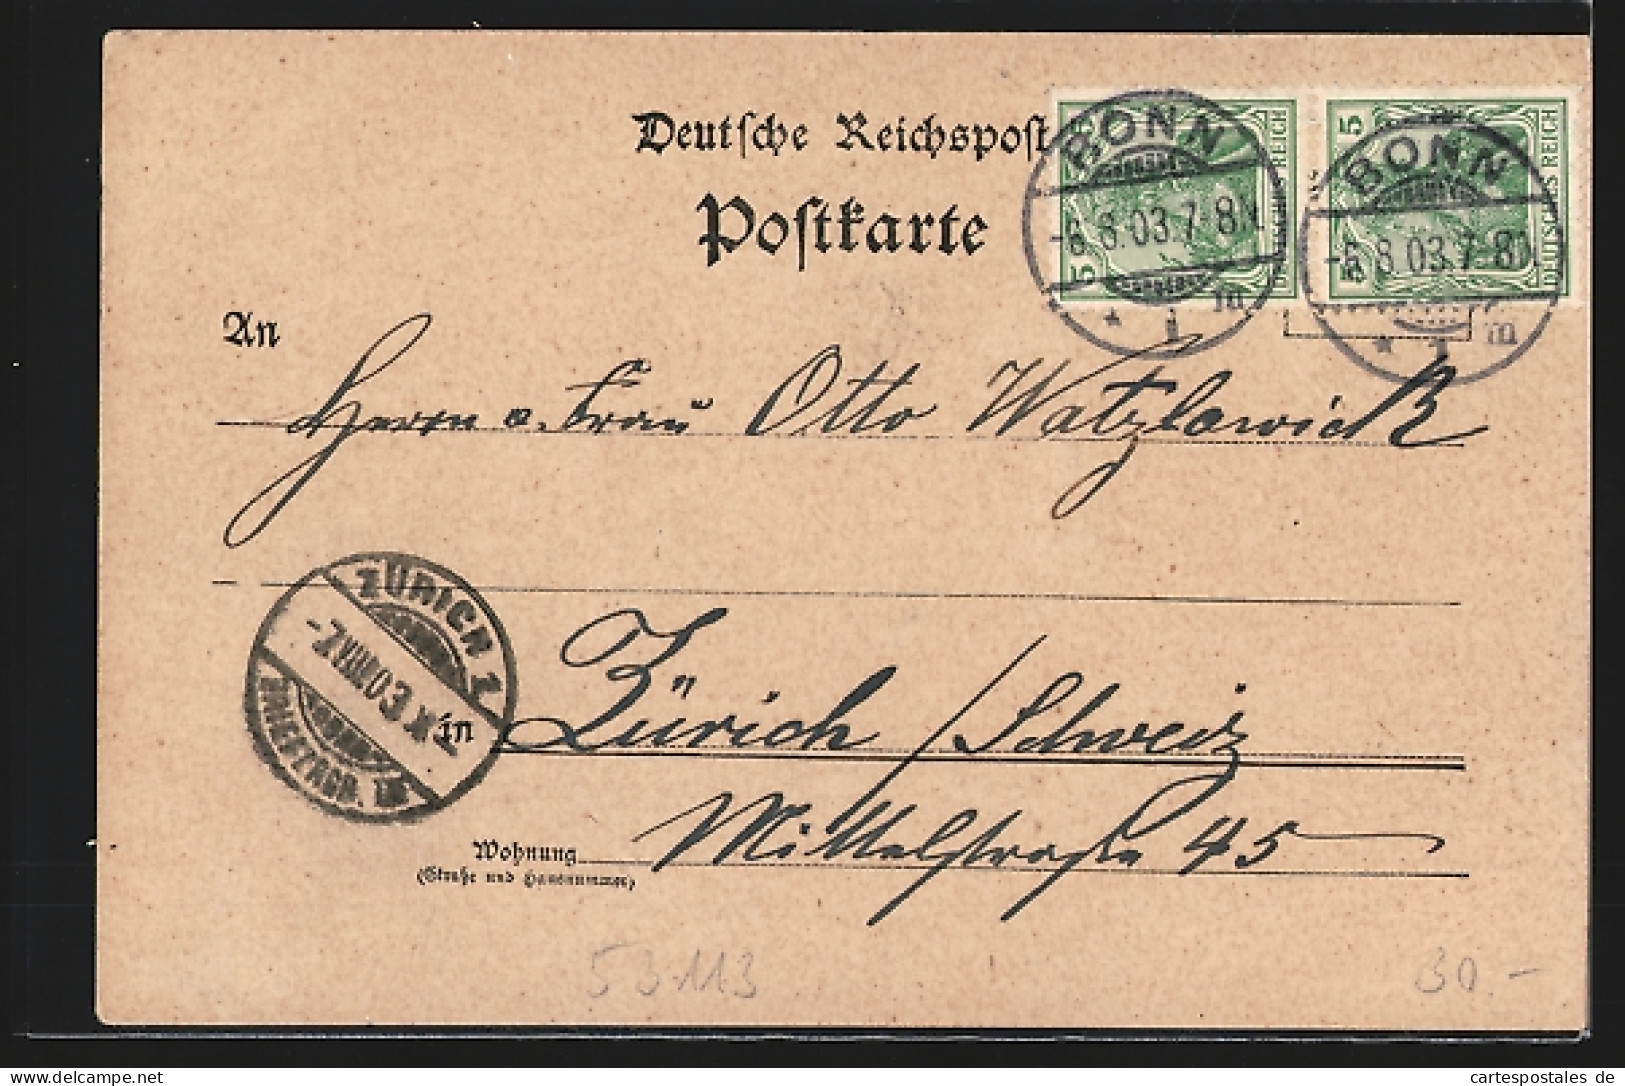 Deutsche Reichspost
Postkarte
5 5 DEUTSCHES REICH
5 5 DEUTSCHES REICH
BONN
-6.8.03.7-8N
* 1 m
BONN
-6.8.03.7-8N
* 1 m
An
Herrn u. Frau Otto Watzlawick
ZÜRICH 1
-7.VIII.03
in Zürich / Schweiz
Wohnung Mittelstraße 45
(Straße und Hausnummer)
53113
30.-
delcampe.net
cartespostales de